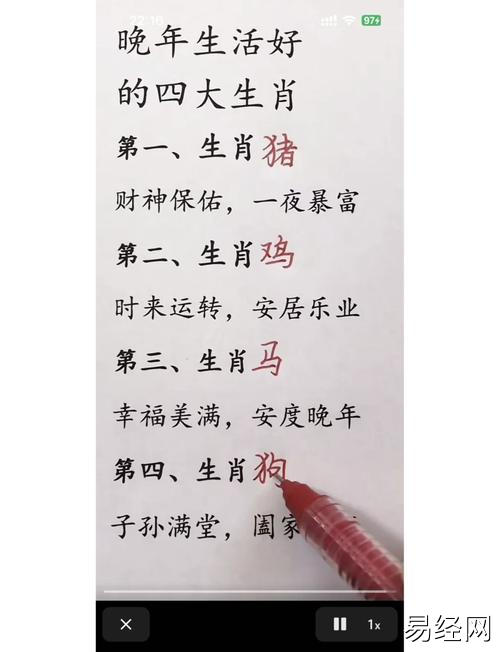 22:16
97
晚年生活好
的四大生肖
第一、生肖猪
财神保佑，一夜暴富
第二、生肖鸡
时来运转，安居乐业
第三、生肖马
幸福美满，安度晚年
第四、生肖狗
子孙满堂，阖家
1x
易经网